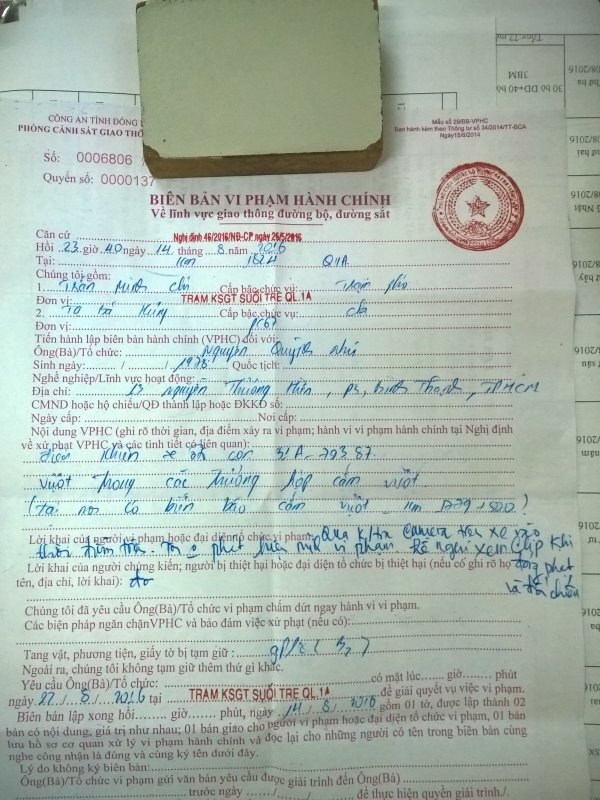 CÔNG AN TỈNH ĐỒNG
PHÒNG CẢNH SÁT GIAO THÔ
Mẫu số 29/BB-VPHC
Ban hành kèm theo Thông tư số 34/2014/TT-BCA
Ngày15/8/2014
Số: 0006806
Quyển số: 0000137
BIÊN BẢN VI PHẠM HÀNH CHÍNH
Về lĩnh vực giao thông đường bộ, đường sắt
Căn cứ Nghị định 46/2016/NĐ-CP, ngày 26/5/2016
Hồi 23 giờ 40 ngày 14 tháng 8 năm 2016
Tại: Km 1824 Q1A
Chúng tôi gồm:
1. Trần Minh Chí Cấp bậc chức vụ: Trạm phó
Đơn vị: TRẠM KSGT SUỐI TRE QL.1A
2. Tạ Bá Cấp bậc chức vụ:
Đơn vị: PC67
Tiến hành lập biên bản hành chính (VPHC) đối với:
Ông(Bà)/Tổ chức: Nguyễn Quỳnh Như
Sinh ngày: / / 1978 Quốc tịch:
Nghề nghiệp/Lĩnh vực hoạt động:
Địa chỉ: 13 Nguyễn Thượng Hiền, P5, Bình Thạnh, TPHCM
CMND hoặc hộ chiếu/QĐ thành lập hoặc ĐKKD số:
Ngày cấp: Nơi cấp:
Nội dung VPHC (ghi rõ thời gian, địa điểm xảy ra vi phạm; hành vi vi phạm hành chính tại Nghị định
về xử phạt VPHC và các tình tiết có liên quan):
Điều khiển xe ôtô con 51A-793.87
Vượt trong các trường hợp cấm vượt
(tại nơi có biển báo cấm vượt - Km 1779+500)
Lời khai của người vi phạm hoặc đại diện tổ chức vi phạm: Qua camera xe vào
phát hiện vi phạm Đề nghị xem Clip khi
Lời khai của người chứng kiến; người bị thiệt hại hoặc đại diện tổ chức bị thiệt hại (nếu có ghi rõ họ
tên, địa chỉ, lời khai):
Chúng tôi đã yêu cầu Ông(Bà)/Tổ chức vi phạm chấm dứt ngay hành vi vi phạm.
Các biện pháp ngăn chặnVPHC và bảo đảm việc xử phạt (nếu có):
Tang vật, phương tiện, giấy tờ bị tạm giữ: GPLX
Ngoài ra, chúng tôi không tạm giữ thêm thứ gì khác.
Yêu cầu Ông(Bà)/Tổ chức: có mặt lúc giờ phút
ngày 22 / 8 / 2016 tại TRẠM KSGT SUỐI TRE QL.1A để giải quyết vụ việc vi phạm.
Biên bản lập xong hồi giờ phút, ngày 14 / 8 / 2016 gồm 01 tờ, được lập thành 02
bản có nội dung, giá trị như nhau; 01 bản giao cho người vi phạm hoặc đại diện tổ chức vi phạm, 01 bản
lưu hồ sơ cơ quan xử lý vi phạm hành chính và đọc lại cho những người có tên trong biên bản cùng
nghe công nhận là đúng và cùng ký tên dưới đây.
Lý do không ký biên bản:
Ông(Bà)/Tổ chức vi phạm gửi văn bản yêu cầu được giải trình đến Ông(Bà)
trước ngày / / để thực hiện quyền giải trình./.